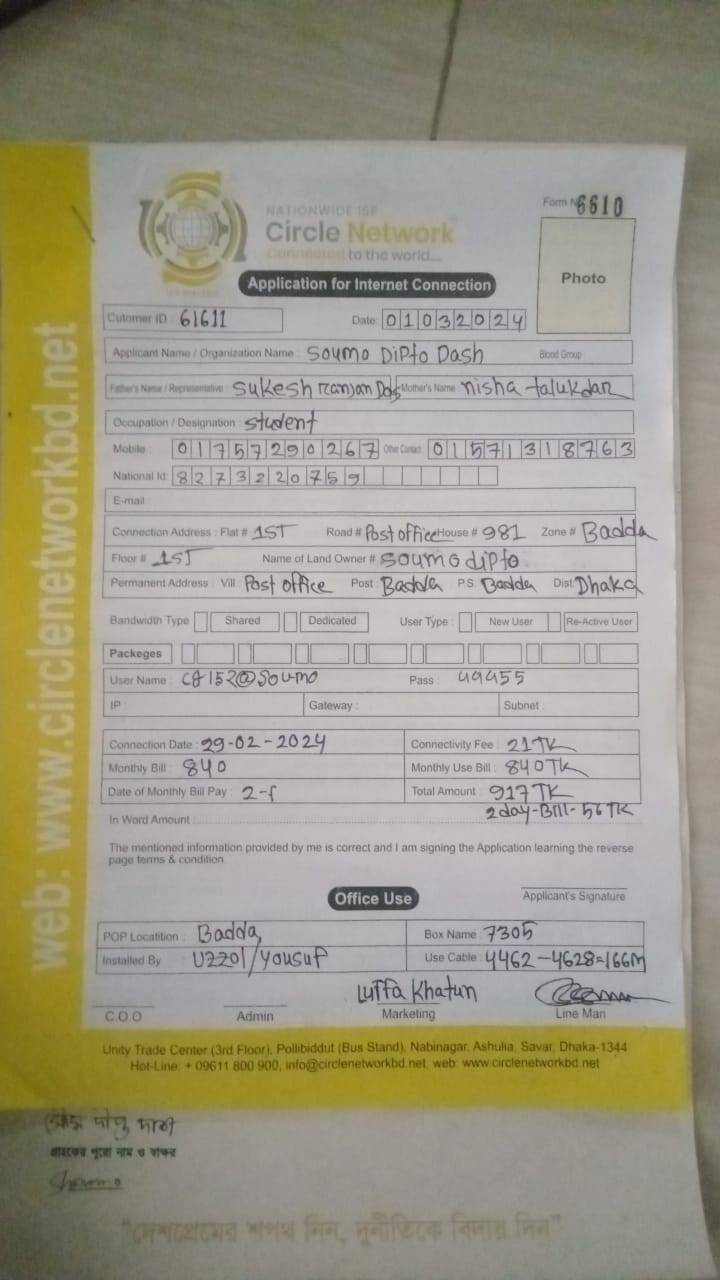 web: www.circlenetworkbd.net
NATIONWIDE ISP
Circle Network
Connected to the world...
Form N 6610
Photo
Application for Internet Connection
Cutomer ID : 61611 Date: 01032024
Applicant Name / Organization Name : Soumo Dipto Dash Blood Group
Father's Name / Representative Sukesh ranjan Das Mother's Name nisha talukdar
Occupation / Designation : Student
Mobile : 01757290267 Other Contact 01571318763
National Id: 8273220759
E-mail :
Connection Address : Flat # 1ST Road # Post office House # 981 Zone # Badda
Floor # 1ST Name of Land Owner # Soumo dipto
Permanent Address : Vill Post office Post : Badda P.S. Badda Dist: Dhaka
Bandwidth Type Shared Dedicated User Type : New User Re-Active User
Packeges
User Name : @Soumo Pass : 49455
IP : Gateway : Subnet :
Connection Date : 29-02-2024 Connectivity Fee : 21TK
Monthly Bill : 840 Monthly Use Bill : 840TK
Date of Monthly Bill Pay : Total Amount : 917TK
In Word Amount : 2day-Bill-56TK
The mentioned information provided by me is correct and I am signing the Application learning the reverse
page terms & condition.
Office Use
Applicant's Signature
POP Locatition : Badda Box Name : 7305
Installed By Uzzol/Yousuf Use Cable : 4462-4628=166M
Lutfa Khatun
C.O.O Admin Marketing Line Man
Unity Trade Center (3rd Floor), Pollibiddut (Bus Stand), Nabinagar, Ashulia, Savar, Dhaka-1344
Hot-Line: + 09611 800 900, info@circlenetworkbd.net, web: www.circlenetworkbd.net
গ্রাহকের পুরো নাম ও স্বাক্ষর
"দেশপ্রেমের শপথ নিন, দুর্নীতিকে বিদায় দিন"